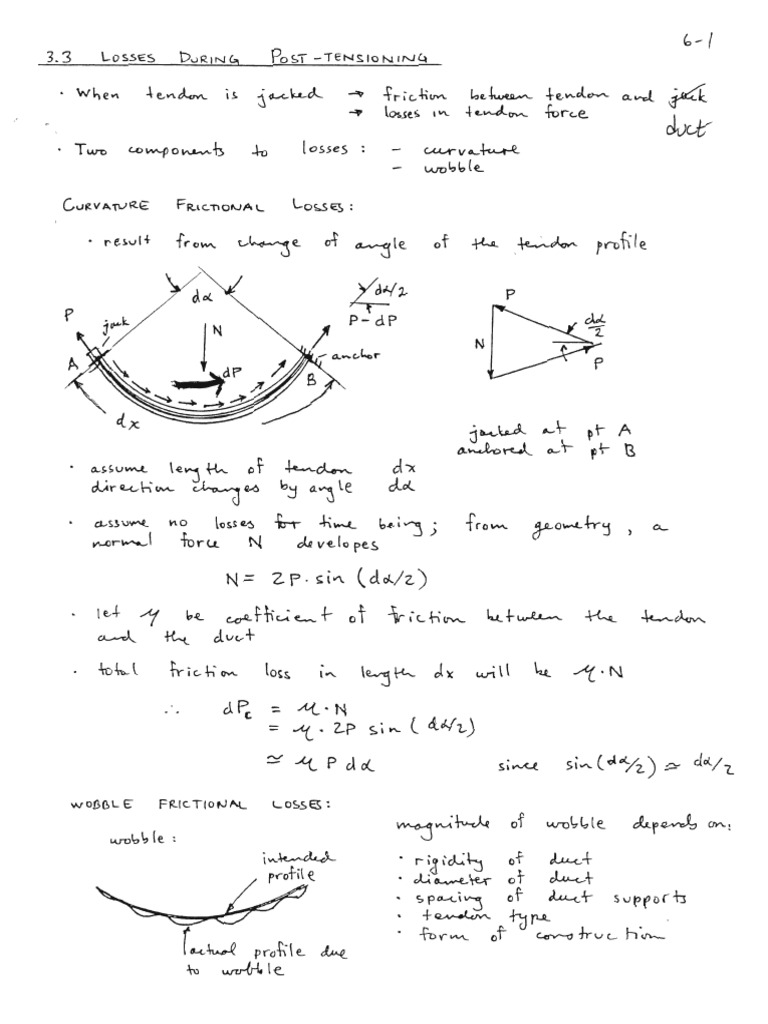 6-1
3.3 LOSSES DURING POST-TENSIONING
· When tendon is jacked → friction between tendon and jack
duct
→ losses in tendon force
· Two components to losses : - curvature
- wobble
CURVATURE FRICTIONAL LOSSES:
· result from change of angle of the tendon profile
dα
P
jack
A
N
dP
dx
dα/2
P-dP
anchor
B
P
N
dα/2
P
jacked at pt A
anchored at pt B
· assume length of tendon dx
direction changes by angle dα
· assume no losses for time being; from geometry, a
normal force N developes
N = 2P·sin (dα/2)
· let μ be coefficient of friction between the tendon
and the duct
· total friction loss in length dx will be μ·N
∴ dPc = μ·N
= μ·2P sin (dα/2)
≃ μ P dα since sin(dα/2) ≃ dα/2
WOBBLE FRICTIONAL LOSSES:
wobble :
intended
profile
actual profile due
to wobble
magnitude of wobble depends on:
· rigidity of duct
· diameter of duct
· spacing of duct supports
· tendon type
· form of construction